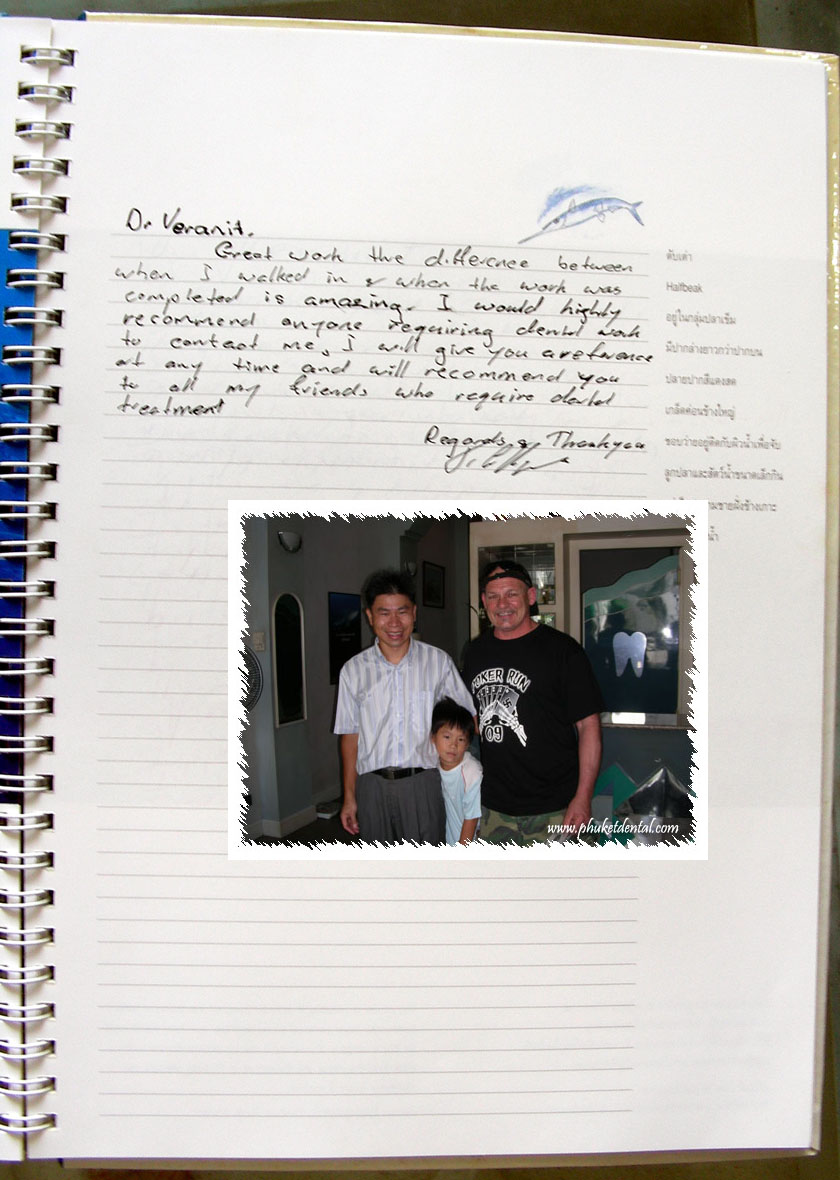 Dr Veranit.
Great work the difference between
when I walked in & when the work was
completed is amazing. I would highly
recommend anyone requiring dental work
to contact me, I will give you a reference
at any time and will recommend you
to all my friends who require dental
treatment
Regards & Thankyou
ตับเต่า
Halfbeak
อยู่ในกลุ่มปลาเข็ม
มีปากล่างยาวกว่าปากบน
ปลายปากสีแดงสด
เกล็ดค่อนข้างใหญ่
ชอบว่ายอยู่ติดกับผิวน้ำเพื่อจับ
ลูกปลาและสัตว์น้ำขนาดเล็กกิน
ามชายฝั่งข้างเกาะ
น้ำ
POKER RUN
09
www.phuketdental.com